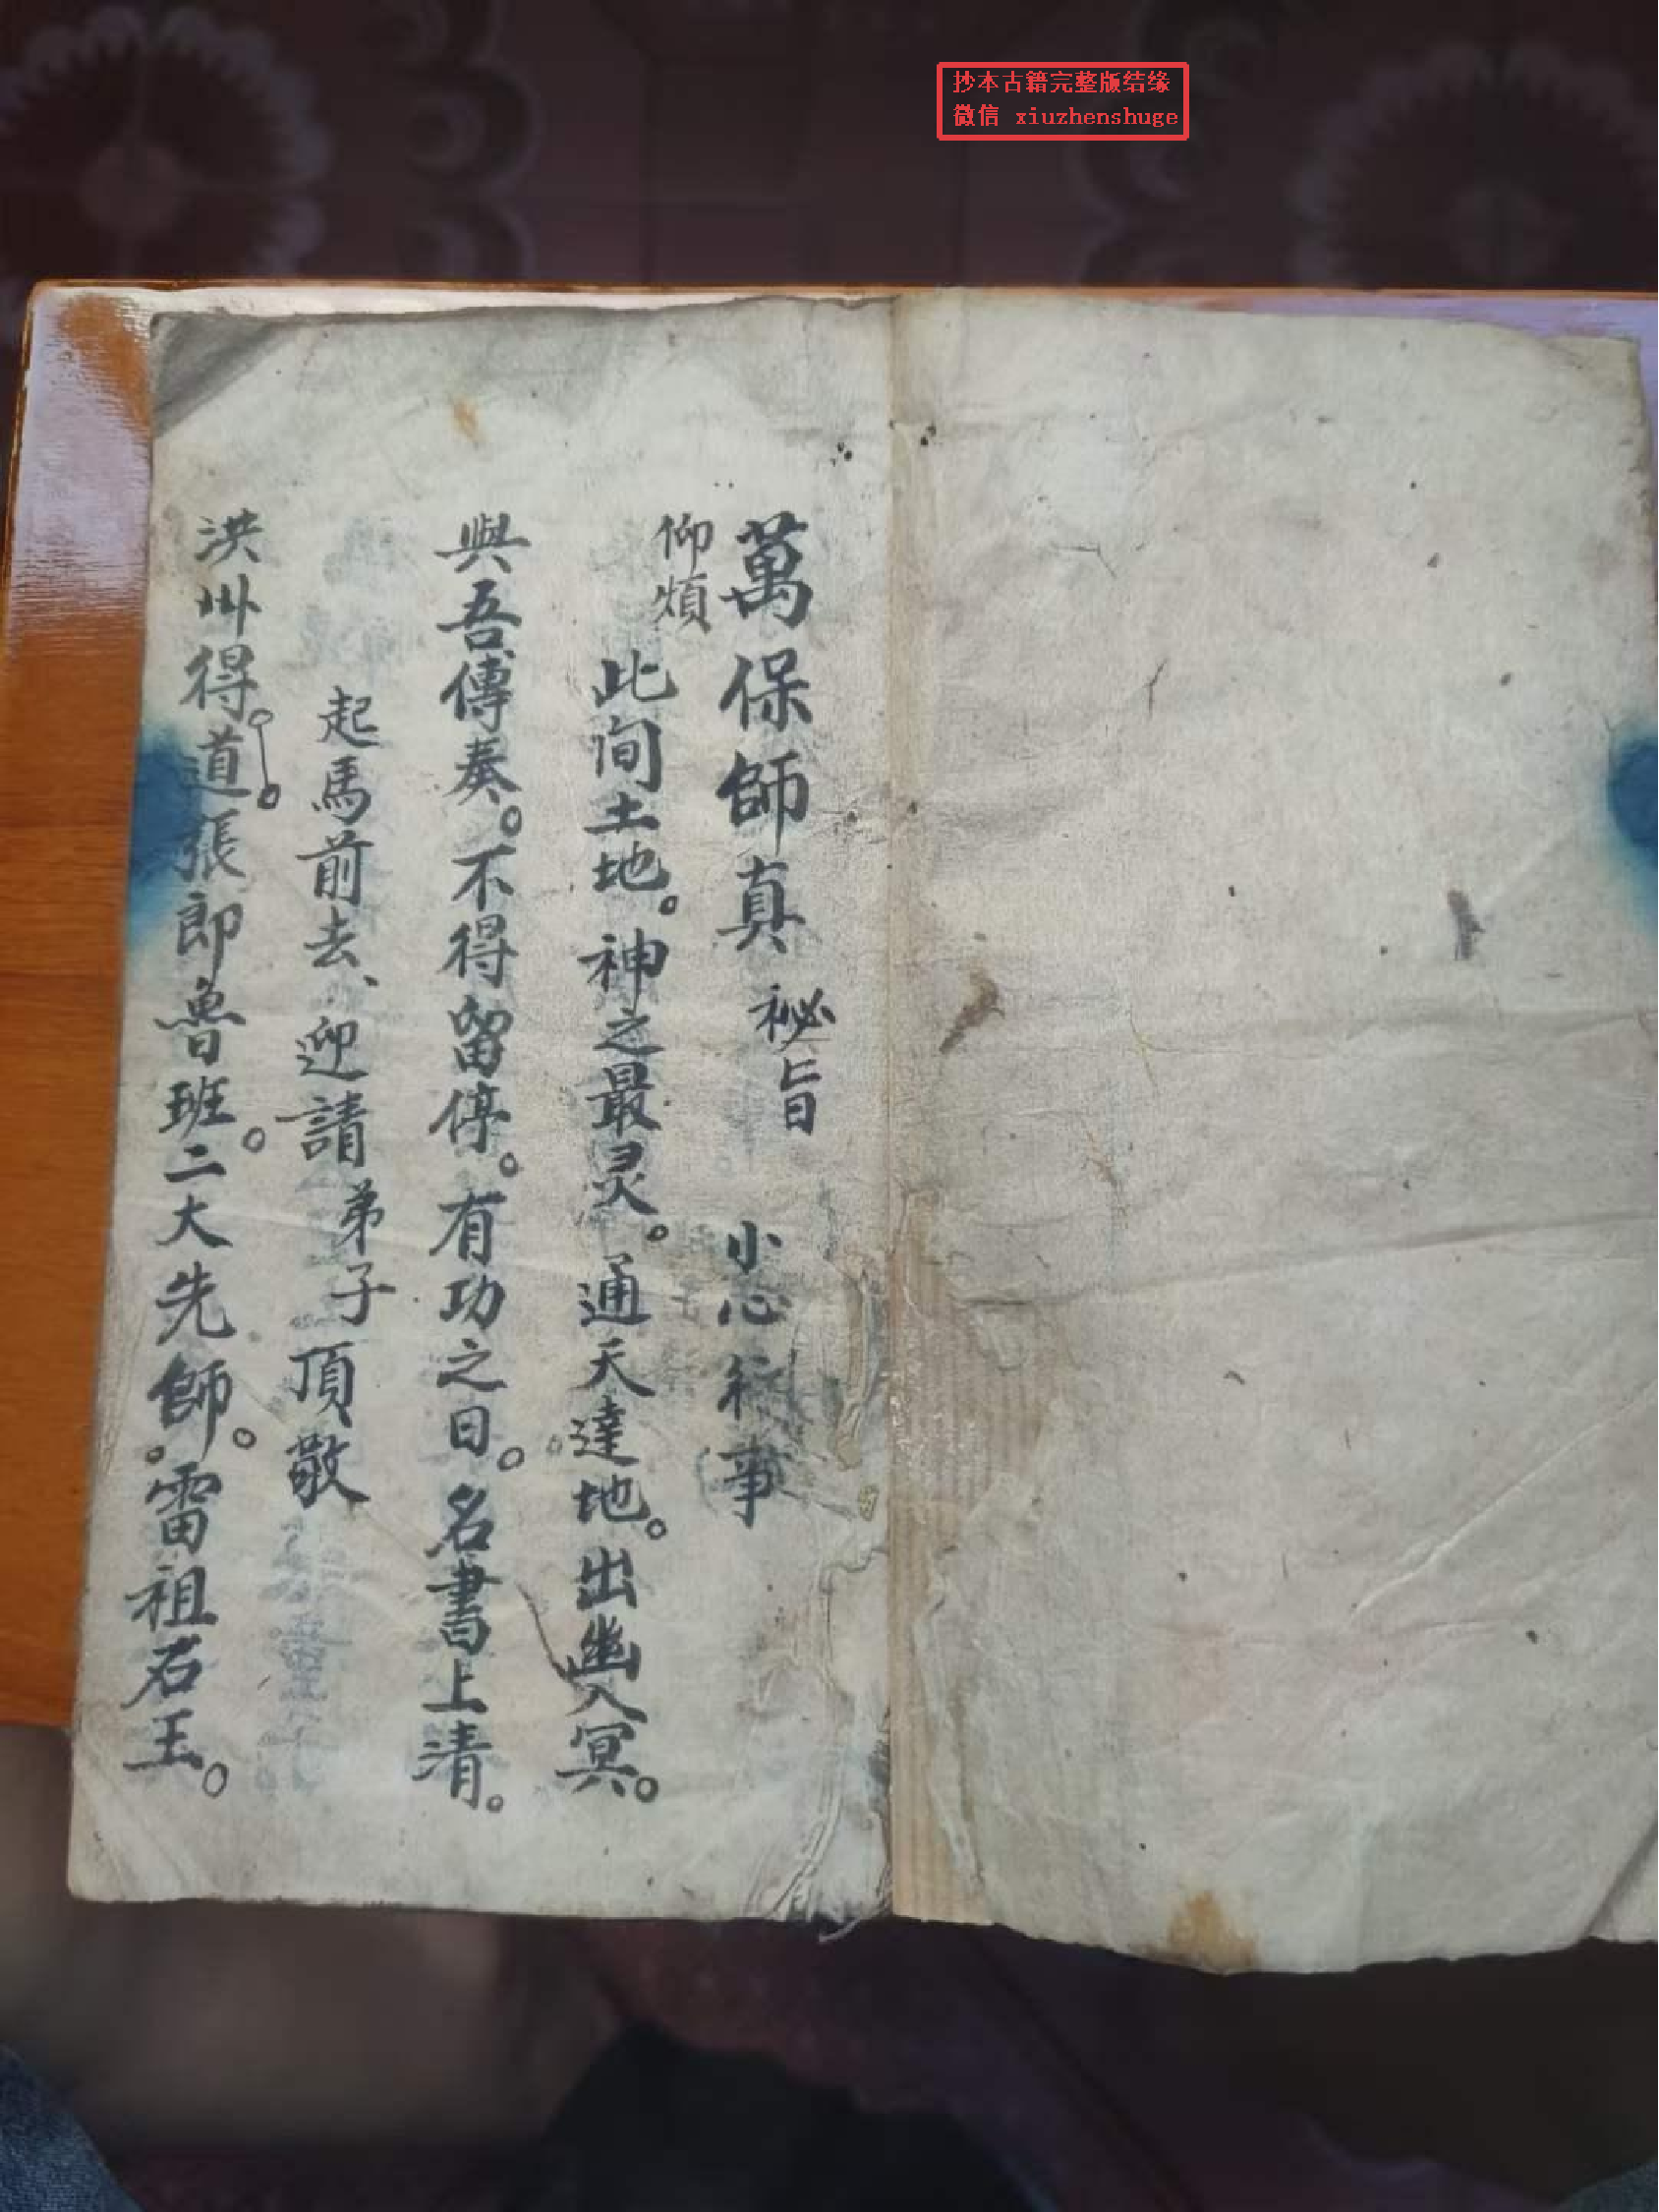 抄本古籍完整版结缘
微信 xiuzhenshuge
萬保師真 祕旨 小心行事
仰煩
此間土地。神之最灵。通天達地。出幽入冥。
與吾傳奏。不得留停。有功之日。名書上清。
起馬前去、迎請弟子頂敬
洪州得道。張郎魯班。二大先師。雷祖石王。